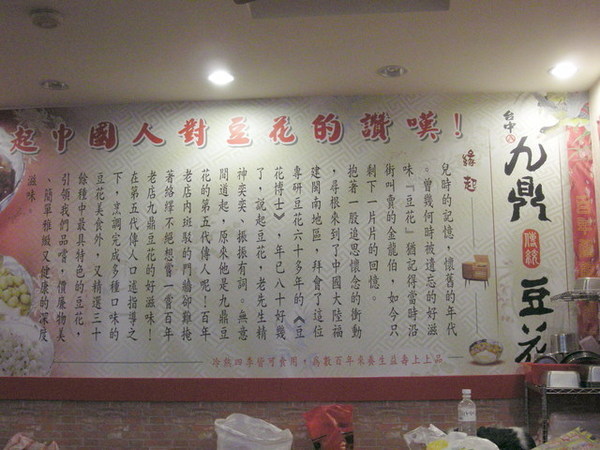 起中國人對豆花的讚嘆！
台中
九鼎
傳統
豆花
緣起
兒時的記憶，懷舊的年代
。曾幾何時被遺忘的好滋
味『豆花』猶記得當時沿
街叫賣的金龍伯，如今只
剩下一片片的回憶。
抱著一股追思懷念的衝動
，尋根來到了中國大陸福
建閩南地區，拜會了這位
專研豆花六十多年的《豆
花博士》，年已八十好幾
了，說起豆花，老先生精
神奕奕、振振有詞。無意
間道起、原來他是九鼎豆
花的第五代傳人呢！百年
老店內斑駁的門牆卻難掩
著絡繹不絕想嘗一嘗百年
老店九鼎豆花的好滋味！
在第五代傳人口述指導之
下，烹調完成多種口味的
豆花美食外，又精選三十
餘種中最具特色的豆花，
引領我們品嚐，價廉物美
、簡單雅緻又健康的深度
滋味。
冷熱四季皆可食用，為數百年來養生益壽上上品